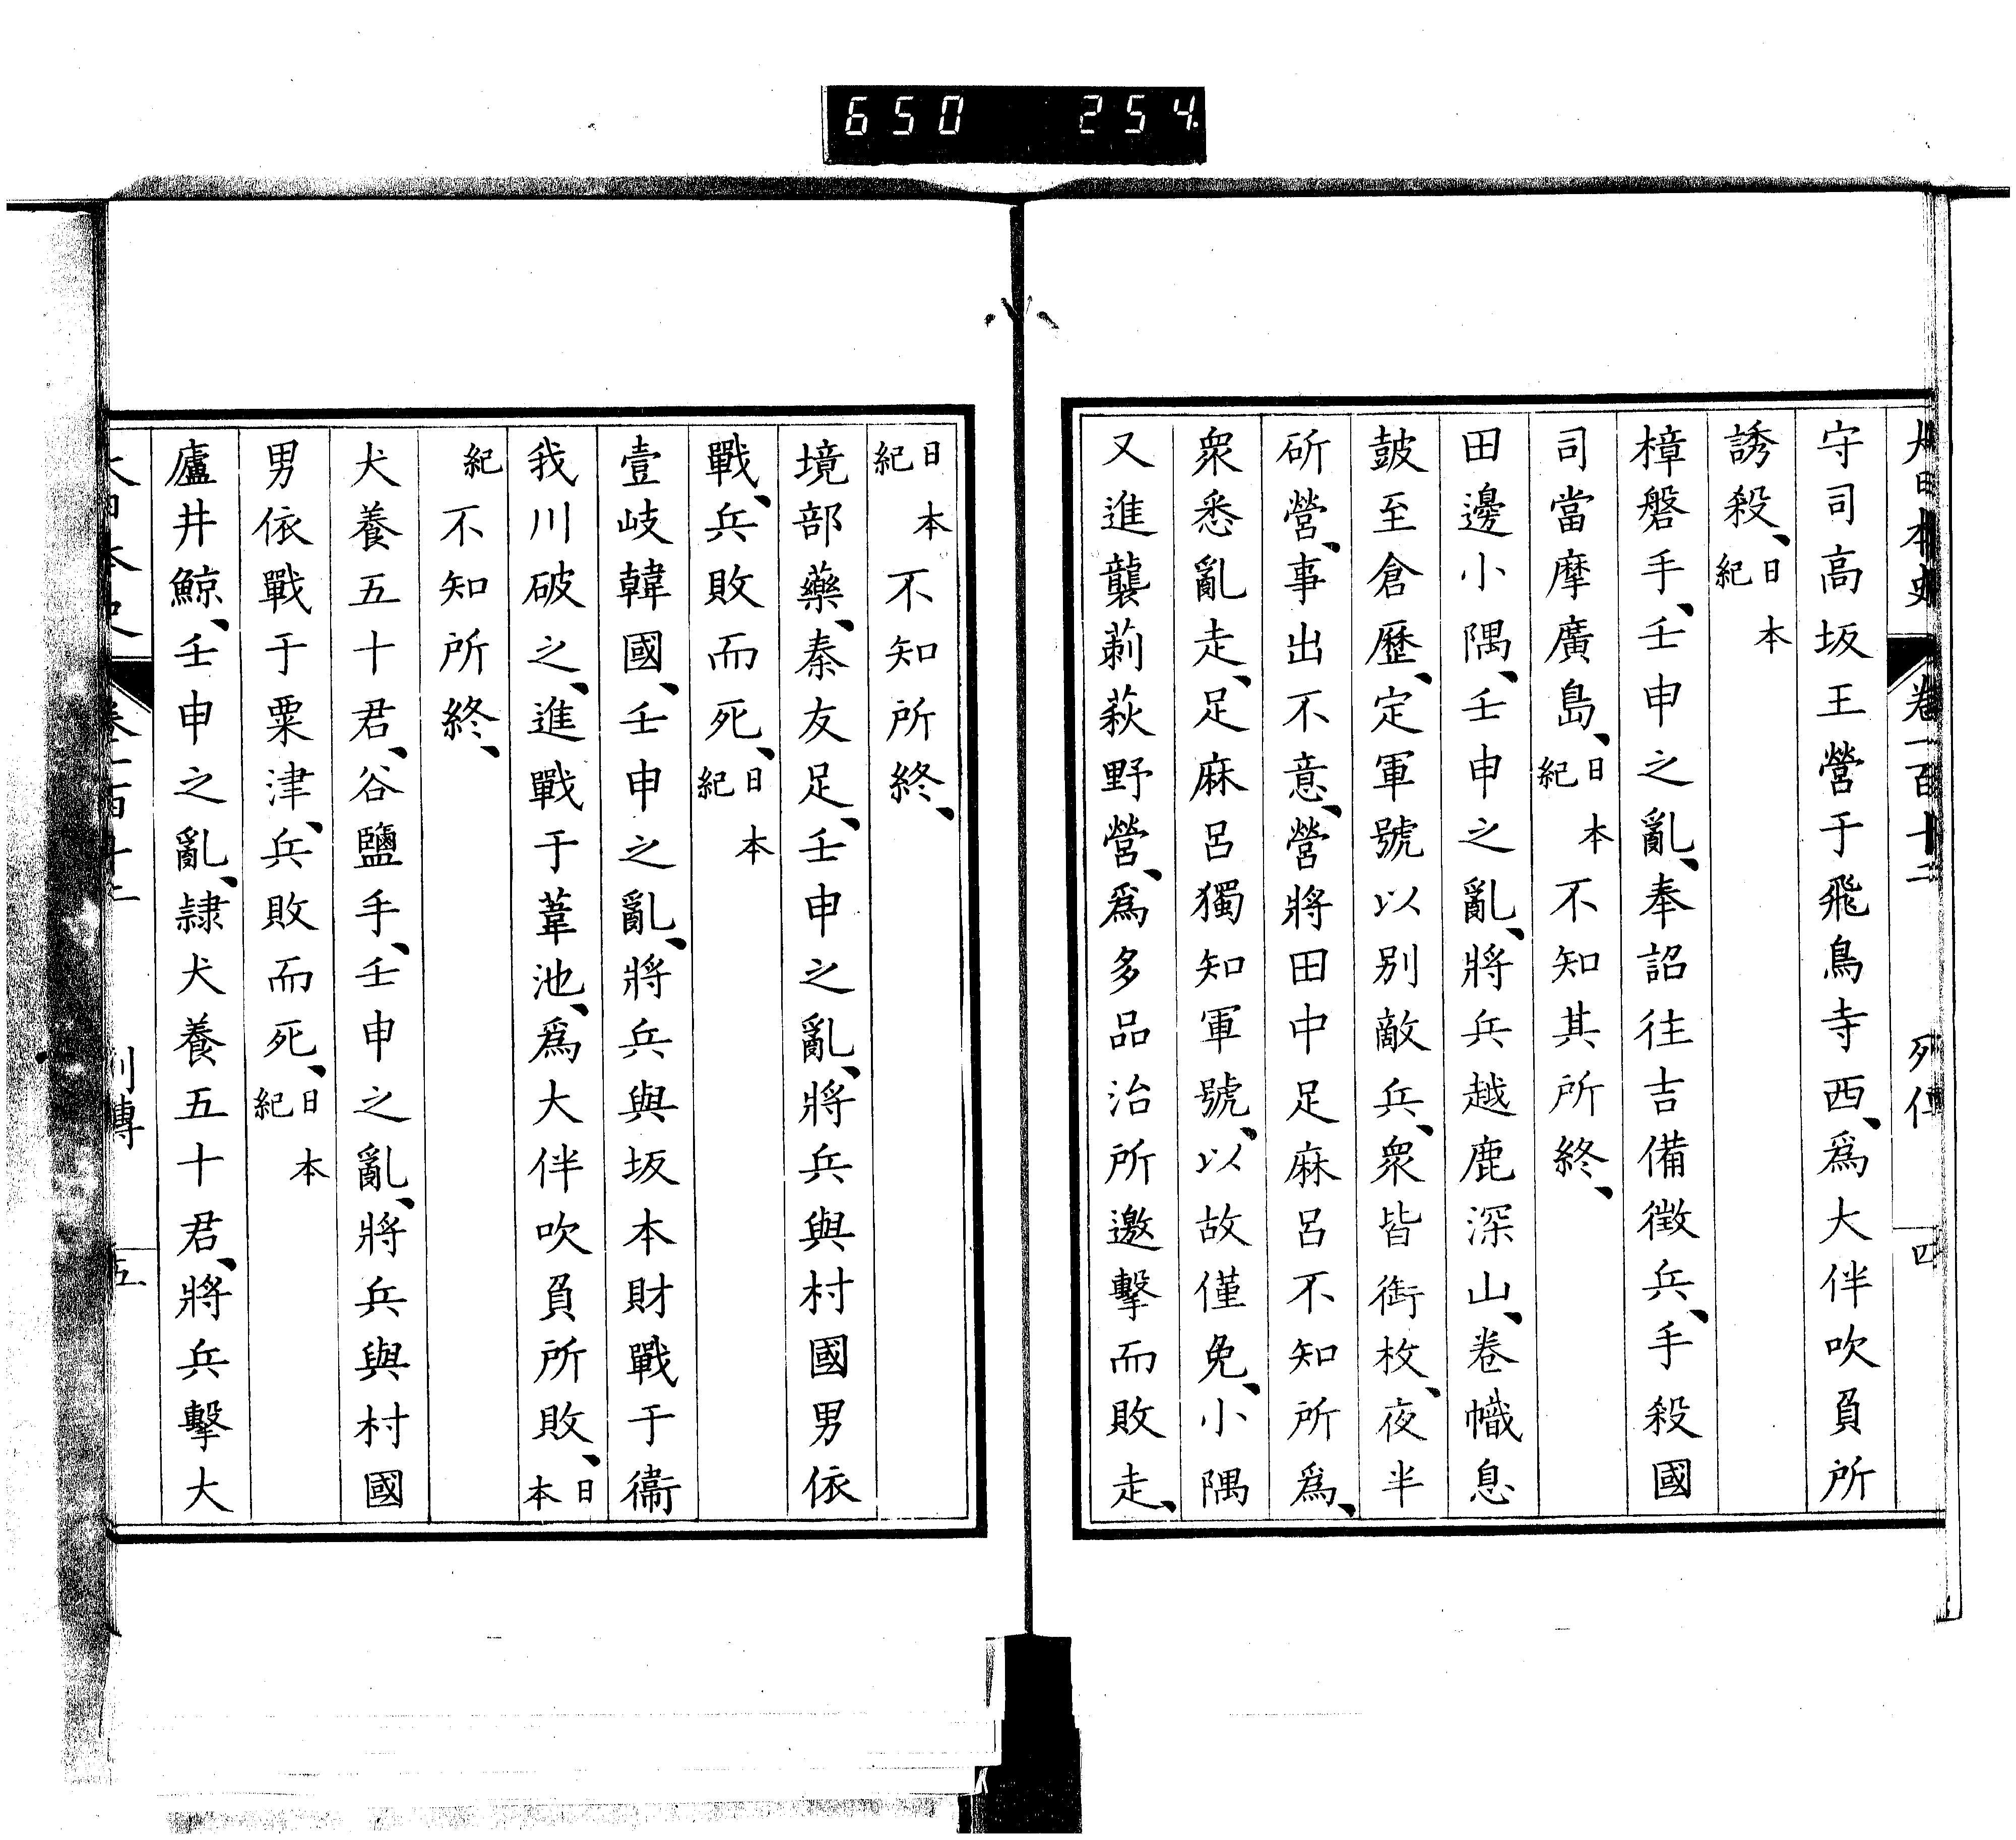 650 254.
大日本史 卷一百十二 列傳 四
守司高坂王營于飛鳥寺西、爲大伴吹負所
誘殺、日本紀
樟磐手、壬申之亂、奉詔往吉備徴兵、手殺國
司當摩廣島、日本紀不知其所終、
田邊小隅、壬申之亂、將兵越鹿深山、卷幟息
鼓至倉歷、定軍號以別敵兵、衆皆銜枚、夜半
斫營、事出不意、營將田中足麻呂不知所爲、
衆悉亂走、足麻呂獨知軍號、以故僅免、小隅
又進襲莿萩野營、爲多品治所邀擊而敗走、
日本紀不知所終、
境部藥、秦友足、壬申之亂、將兵與村國男依
戰、兵敗而死、日本紀
壹岐韓國、壬申之亂、將兵與坂本財戰于衞
我川破之、進戰于葦池、爲大伴吹負所敗、日本
紀不知所終、
犬養五十君、谷鹽手、壬申之亂、將兵與村國
男依戰于粟津、兵敗而死、日本紀
廬井鯨、壬申之亂、隷犬養五十君、將兵擊大
大日本史 卷一百十二 列傳 五